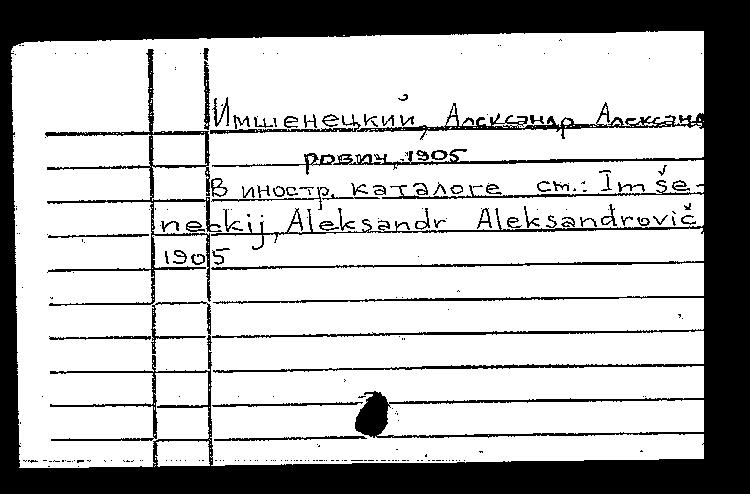 Имшенецкий, Александр Александ
рович, 1905
В иностр. каталоге см.: Imše-
neckij, Aleksandr Aleksandrovič,
1905